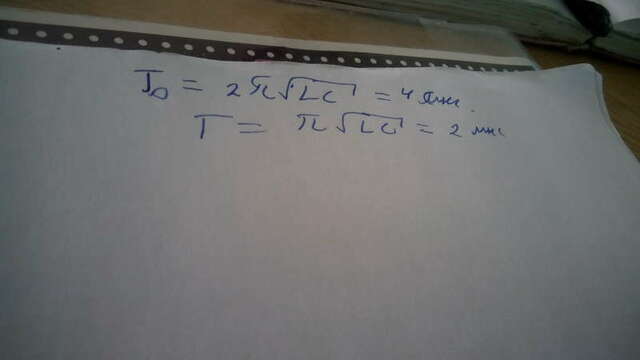 T₀ = 2π√LC = 4 мкс.
T = π√LC = 2 мкс